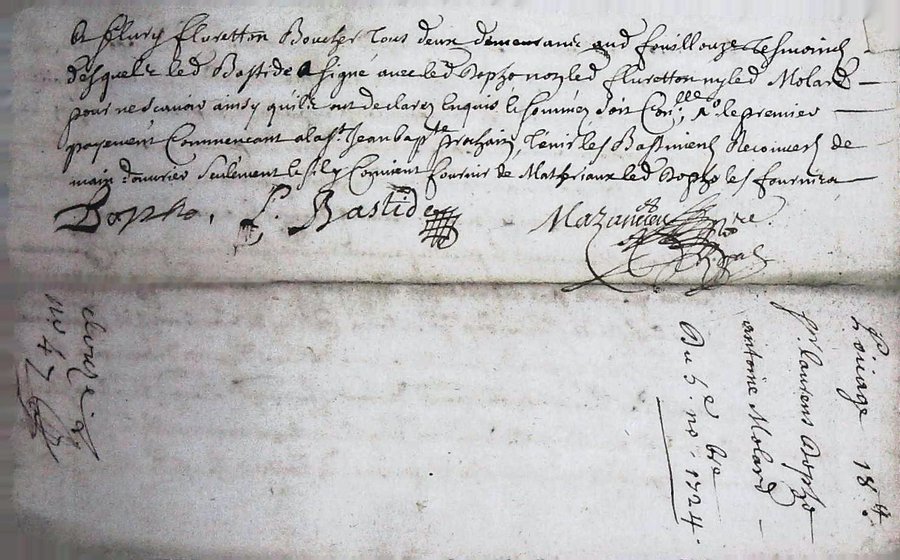 & fleury fluretton Boucher tout deux demeurants aud fouillouze tesmoins
desquels led Bastide a signé avec led Dopho non led fluretton ny led Molard
pour ne scavoir ainsy quils ont declarez Enquis et sommez soit Con.lle, le premier
payement Commencant a la st Jean bapte prochain, tenir les Bastiments Recouverts de
main douvrier seulement et sil y Convient fournir de Matheriaux led Dopho les fournira
Dopho, P. Bastide Mazandieu
Louage 18
sr. laurens Dopho
antoine Molard
Du 5.e no.bre 1724.